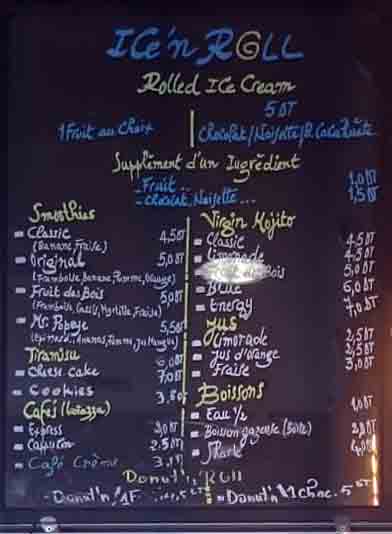 ICe'n ROLL
Rolled ICe Cream
5 DT
1 Fruit au Choix
Chocolat/Noisette/P.Cacahuète
Supplément d'un Ingrédient
- Fruit .. 1,0 DT
- Chocolat, Noisette ... 1,5 DT
Smoothies
- Classic 4,5 DT
(Banane, Fraise)
- Original 5,0 DT
(Framboise, Banane, Pomme, Orange)
- Fruit des Bois 5,0 DT
(Framboise, Cassis, Myrtille, Fraise)
- Mr Popeye 5,5 DT
(Epinard, Ananas, Pomme, Jus Mangue)
Tiramisu 6,0 DT
- Chese cake 7,0 DT
- Cookies 3,80
Cafés (Lavazza)
- Express
- Cappucino 2.5 DT
- Café Crème
Virgin Mojito
- Classic 4,5 DT
- Limonade 4,5 DT
Bois 5,0 DT
- Blue 6,0 DT
- Energy 7,0 DT
Jus
- Limonade 2,5 DT
- Jus d'orange 2,5 DT
- Fraise 3,0 DT
Boissons
- Eau 1/2 1,0 DT
- Boisson gazeuse (Boite) 2,0 DT
- Shark
Donut'n Roll
- Donut'n 1F
- Donut'n 1 choc. 5 DT